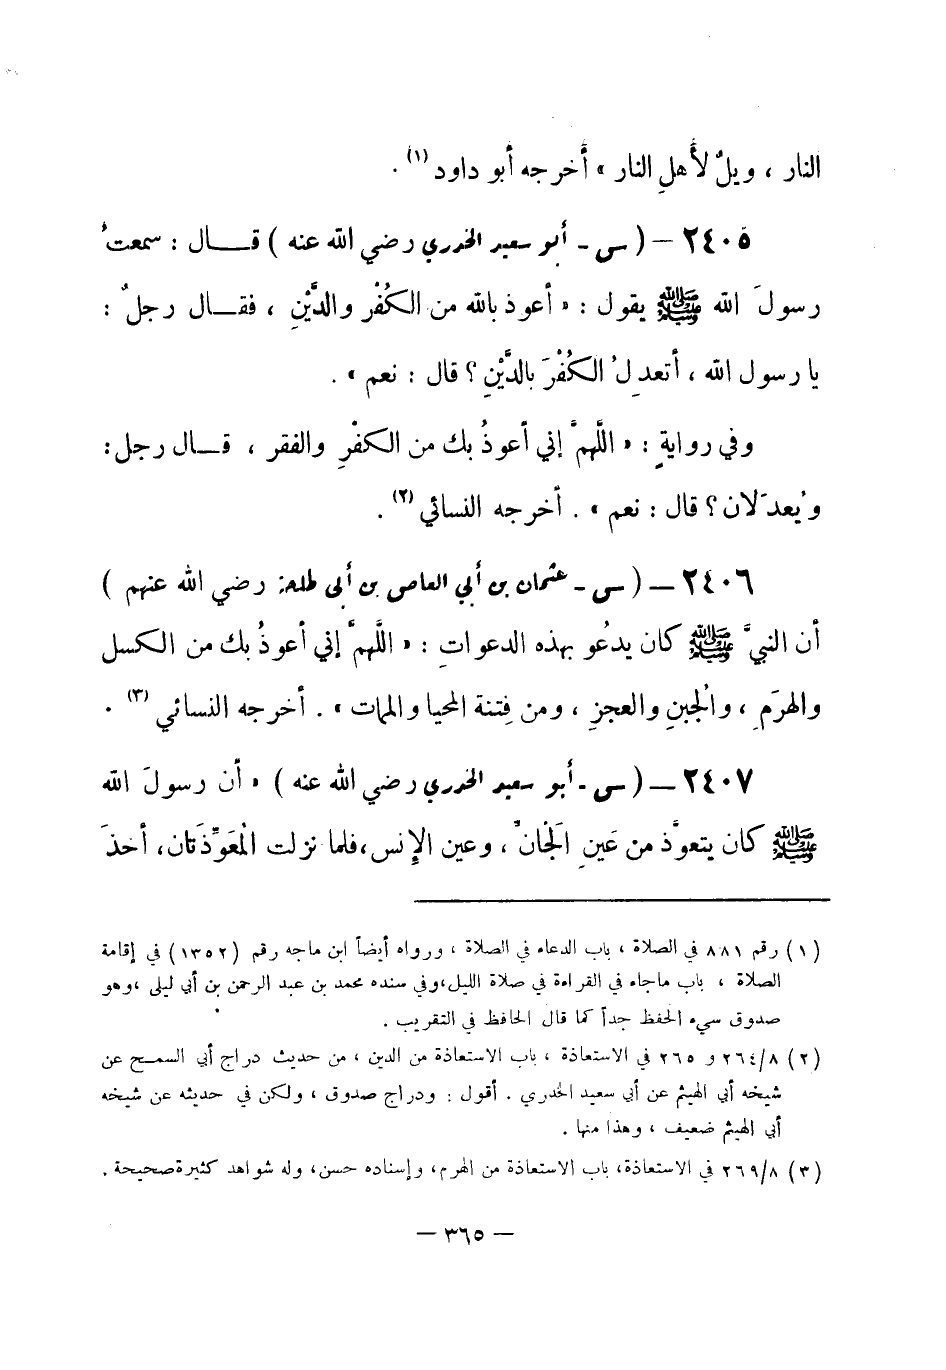 النار ، ويلٌ لأَهلِ النار » أَخرجه أبو داود (١) .
٢٤٠٥ – ( س - أبو سعيد الخدري رضي الله عنه ) قــال : سمعتُ
رسولَ الله ﷺ يقول : « أعوذ بالله من الكُفْرِ والدَّيْنِ ، فقــال رجلٌ :
يا رسول الله ، أتعدِلُ الكُفْرَ بالدَّيْنِ ؟ قال : نعم » .
وفي روايةٍ : « اللَّهمَّ إني أعوذُ بك من الكفْرِ والفقر ، قــال رجل :
ويُعدَلان ؟ قال : نعم » . أخرجه النسائي (٢) .
٢٤٠٦ – ( س - عثمان بن أبي العاص بن أبي طلحة رضي الله عنهم )
أن النبيَّ ﷺ كان يدعُو بهذه الدعواتِ : « اللَّهمَّ إني أعوذُ بك من الكسل
والهرَمِ ، والُجبنِ والعجزِ ، ومن فِتنة المحيا والممات » . أخرجه النسائي (٣) .
٢٤٠٧ – ( س - أبو سعيد الخدري رضي الله عنه ) « أن رسولَ الله
ﷺ كان يتعوَّذ من عَينِ الَجانِّ ، وعين الإنس ،فلما نزلت الْمعَوِّذَتان، أخذَ
(١) رقم ٨٨١ في الصلاة ، باب الدعاء في الصلاة ، ورواه أيضاً ابن ماجه رقم (١٣٥٢) في إقامة
الصلاة ، باب ماجاء في القراءة في صلاة الليل،وفي سنده محمد بن عبد الرحمن بن أبي ليلى ،وهو
صدوق سيء الحفظ جداً كما قال الحافظ في التقريب .
(٢) ٢٦٤/٨ و ٢٦٥ في الاستعاذة ، باب الاستعاذة من الدين ، من حديث دراج أبي السمــح عن
شيخه أبي الهيثم عن أبي سعيد الخدري . أقول : ودراج صدوق ، ولكن في حديثه عن شيخه
أبي الهيثم ضعيف ، وهذا منها .
(٣) ٢٦٩/٨ في الاستعاذة، باب الاستعاذة من الهرم، وإسناده حسن، وله شواهد كثيرة صحيحة .
– ٣٦٥ –